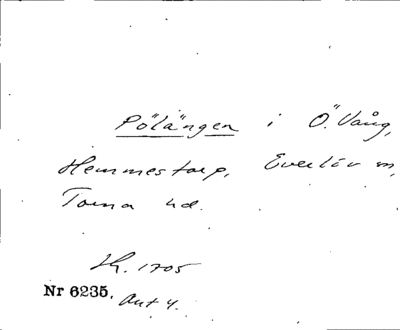 Pölängen i Ö. Vång,
Hemmestorp, Everlöv sn,
Torna hd.
Lh. 1705
Nr 6235. Akt 4.